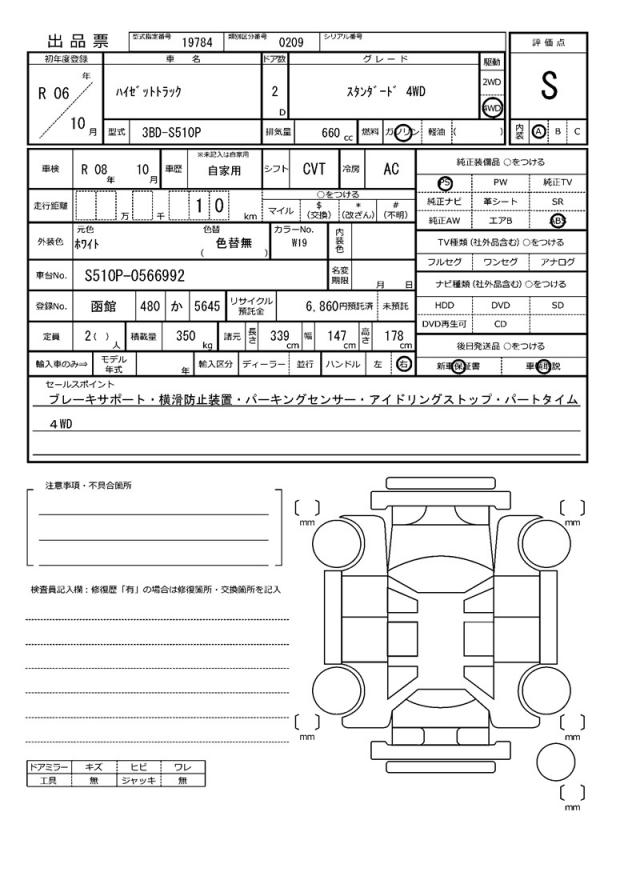 出品票 型式指定番号 19784 類別区分番号 0209 シリアル番号
評価点
S
初年度登録 車名 ドア数 グレード 駆動
R 06 年 10 月
ﾊｲｾﾞｯﾄﾄﾗｯｸ 2 D ｽﾀﾝﾀﾞｰﾄﾞ 4WD
2WD
4WD
型式 3BD-S510P 排気量 660 cc 燃料 ガソリン 軽油 ( )
内装 A B C
車検 R 08 年 10 月 車歴 ※未記入は自家用 自家用 シフト CVT 冷房 AC
走行距離 万 千 1 0 km
○をつける
マイル $ (交換) * (改ざん) # (不明)
外装色 元色 ﾎﾜｲﾄ 色替 色替無 ( ) カラーNo. W19 内装色
車台No. S510P-0566992 名変期限 月 日
登録No. 函館 480 か 5645 リサイクル預託金 6,860円預託済 未預託
定員 2( ) 人 積載量 350 kg 諸元 長さ 339 cm 幅 147 cm 高さ 178 cm
輸入車のみ⇒ モデル年式 年 輸入区分 ディーラー 並行 ハンドル 左 右
純正装備品 ○をつける
PS PW 純正TV
純正ナビ 革シート SR
純正AW エアB ABS
TV種類 (社外品含む) ○をつける
フルセグ ワンセグ アナログ
ナビ種類 (社外品含む) ○をつける
HDD DVD SD
DVD再生可 CD
後日発送品 ○をつける
新車保証書 車輌取説
セールスポイント
ブレーキサポート・横滑防止装置・パーキングセンサー・アイドリングストップ・パートタイム
4WD
注意事項・不具合箇所
検査員記入欄：修復歴「有」の場合は修復箇所・交換箇所を記入
ドアミラー キズ ヒビ ワレ
工具 無 ジャッキ 無
mm
mm
mm
mm
mm